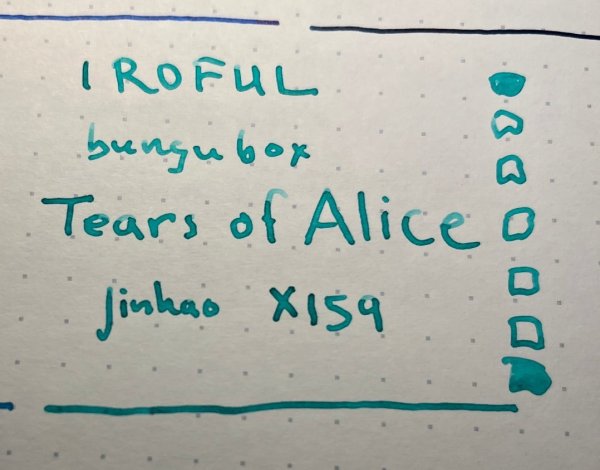 IROFUL
bungubox
Tears of Alice
Jinhao X159